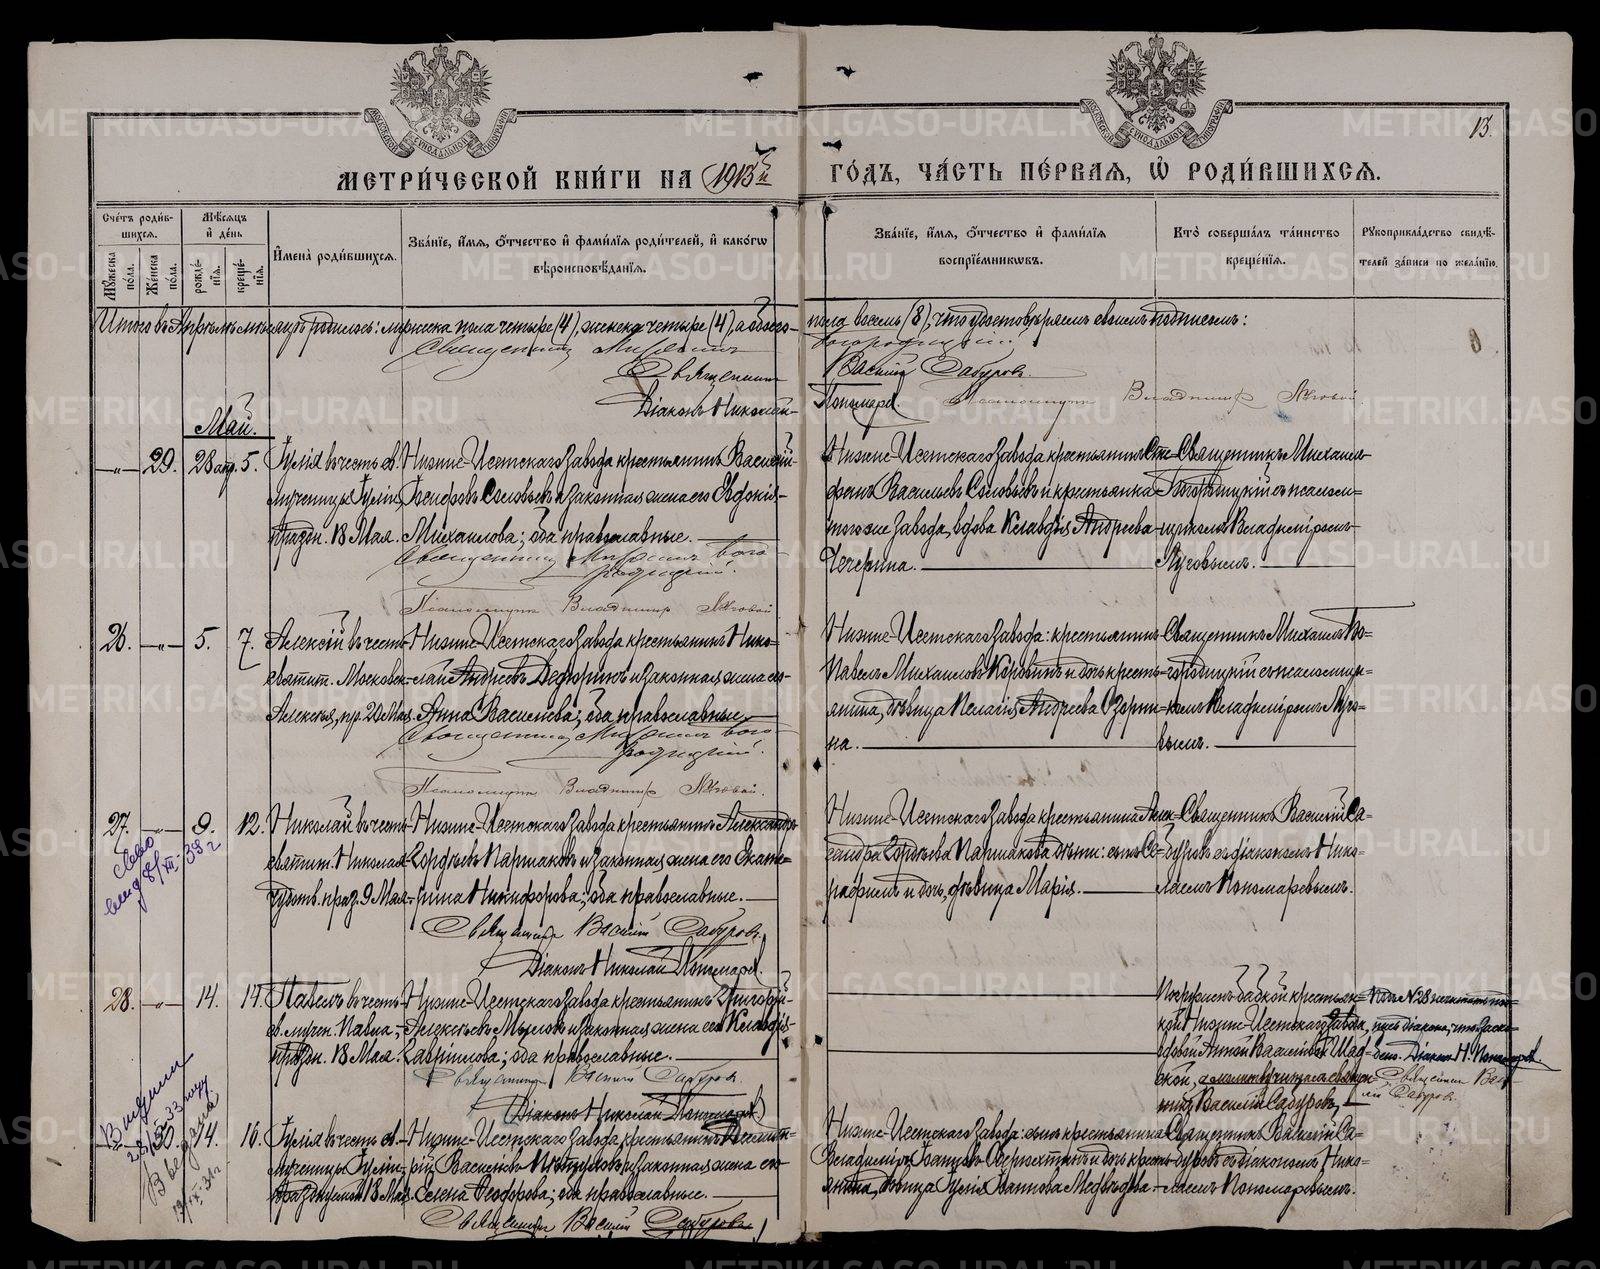 МЕТРИ́ЧЕСКОЙ КНИ́ГИ НА 1913й ГО́ДЪ, ЧА́СТЬ ПЕ́РВАЯ, Ѡ҆ РОДИ́ВШИХСЯ.
13.
Сче́тъ роди́вшихся.
Мѣ́сяцъ и҆ де́нь
Мꙋ́жеска по́ла.
Же́нска по́ла.
рожде́нїя.
креще́нїя.
И҆мена̀ роди́вшихся.
Зва́нїе, и҆́мя, ѻ҆́тчество и҆ фами́лїя роди́телей, и҆ како́гѡ вѣроисповѣ́данїя.
Зва́нїе, и҆́мя, ѻ҆́тчество и҆ фами́лїя воспрїе́мникѡвъ.
Кто̀ соверша́лъ та́инство креще́нїя.
Рꙋкоприкла́дство свидѣ́телей за́писи по жела́нїю.
Итого въ Апрѣлѣ мѣсяцѣ родилось: мужеска пола четыре (4), женска четыре (4), а обоего пола восемь (8), что удостовѣряемъ своимъ подписомъ:
Священникъ Михаилъ Богородицкій
Священникъ Василій Сабуровъ.
Діаконъ Николай Пономарев.
Псаломщикъ Владимиръ Луговой
Май.
—„— 29. 28 апр. 5.
Гулія въ честь св.
мученицы Гуліи,
праздн. 18 Мая.
Низше-Исетскаго завода крестьянинъ Василій
Соловьевъ и законная жена его Евдокія
Михаилова; оба православные.
Священникъ Михаилъ Богородицкій.
Псаломщикъ Владимиръ Луговой
Низше-Исетскаго завода крестьянинъ Сте-
фанъ Васильевъ Соловьевъ и крестьянка
тогоже завода, вдова Клавдія Андреева
Чечерина.
Священникъ Михаилъ
Богородицкій съ псалом-
щикомъ Владиміромъ
Луговымъ.
26. —„— 5. 7.
Алексій въ честь
святит. Московск.
Алексія, пр. 20 Мая.
Низше-Исетскаго завода крестьянинъ Нико-
лай Андреевъ и законная жена его
Анна Васильева; оба православные.
Священникъ Михаилъ Богородицкій.
Псаломщикъ Владимиръ Луговой.
Низше-Исетскаго завода: крестьянинъ
Павелъ Михаиловъ Коровинъ и дочь кресть-
янина, дѣвица Пелагія Андреева Озорни-
на.
Священникъ Михаилъ Бо-
городицкій съ псаломщи-
комъ Владиміромъ Луго-
вымъ.
27. —„— 9. 12.
Николай въ честь
святит. Николая
чудотв. праз. 9 Мая.
Низше-Исетскаго завода крестьянинъ Александръ
Гордѣевъ Паршаковъ и законная жена его Екате-
рина Никифорова; оба православные.
Священникъ Василій Сабуровъ.
Діаконъ Николай Пономарев.
Низше-Исетскаго завода крестьянина Алек-
сандра Гордѣева Паршакова дѣти: сынъ Се-
рафимъ и дочь, дѣвица Марія.
Священникъ Василій Са-
буровъ съ діакономъ Нико-
лаемъ Пономаревымъ.
28. —„— 14. 14.
Павелъ въ честь
св. мучен. Павла,
праздн. 18 Мая.
Низше-Исетскаго завода крестьянинъ Григорій
Алексѣевъ и законная жена его Клавдія
Гавріилова; оба православные.
Священникъ Василій Сабуровъ.
Діаконъ Николай Пономарев
Погруженъ бабкой крестьян-
кой Низше-Исетскаго завода,
вдовой Анной Васильевой Шад-
ской, а молитву читалъ священ-
никъ Василій Сабуровъ.
Діаконъ Н. Пономарев.
Священникъ Василій Сабуровъ.
14. 16.
Гулія въ честь св.
мученицы Гуліи,
празднуемой 18 Мая.
Низше-Исетскаго завода крестьянинъ
Васильевъ и законная жена его
Елена Ѳеодорова; оба православные.
Священникъ Василій Сабуровъ
Низше-Исетскаго завода: сынъ крестьянина
Владиміръ Ивановъ и дочь кресть-
янина, дѣвица Гулія Іоаннова Медвѣдева.
Священникъ Василій Са-
буровъ съ діакономъ Нико-
лаемъ Пономаревымъ.
METRIKI.GASO-URAL.RU